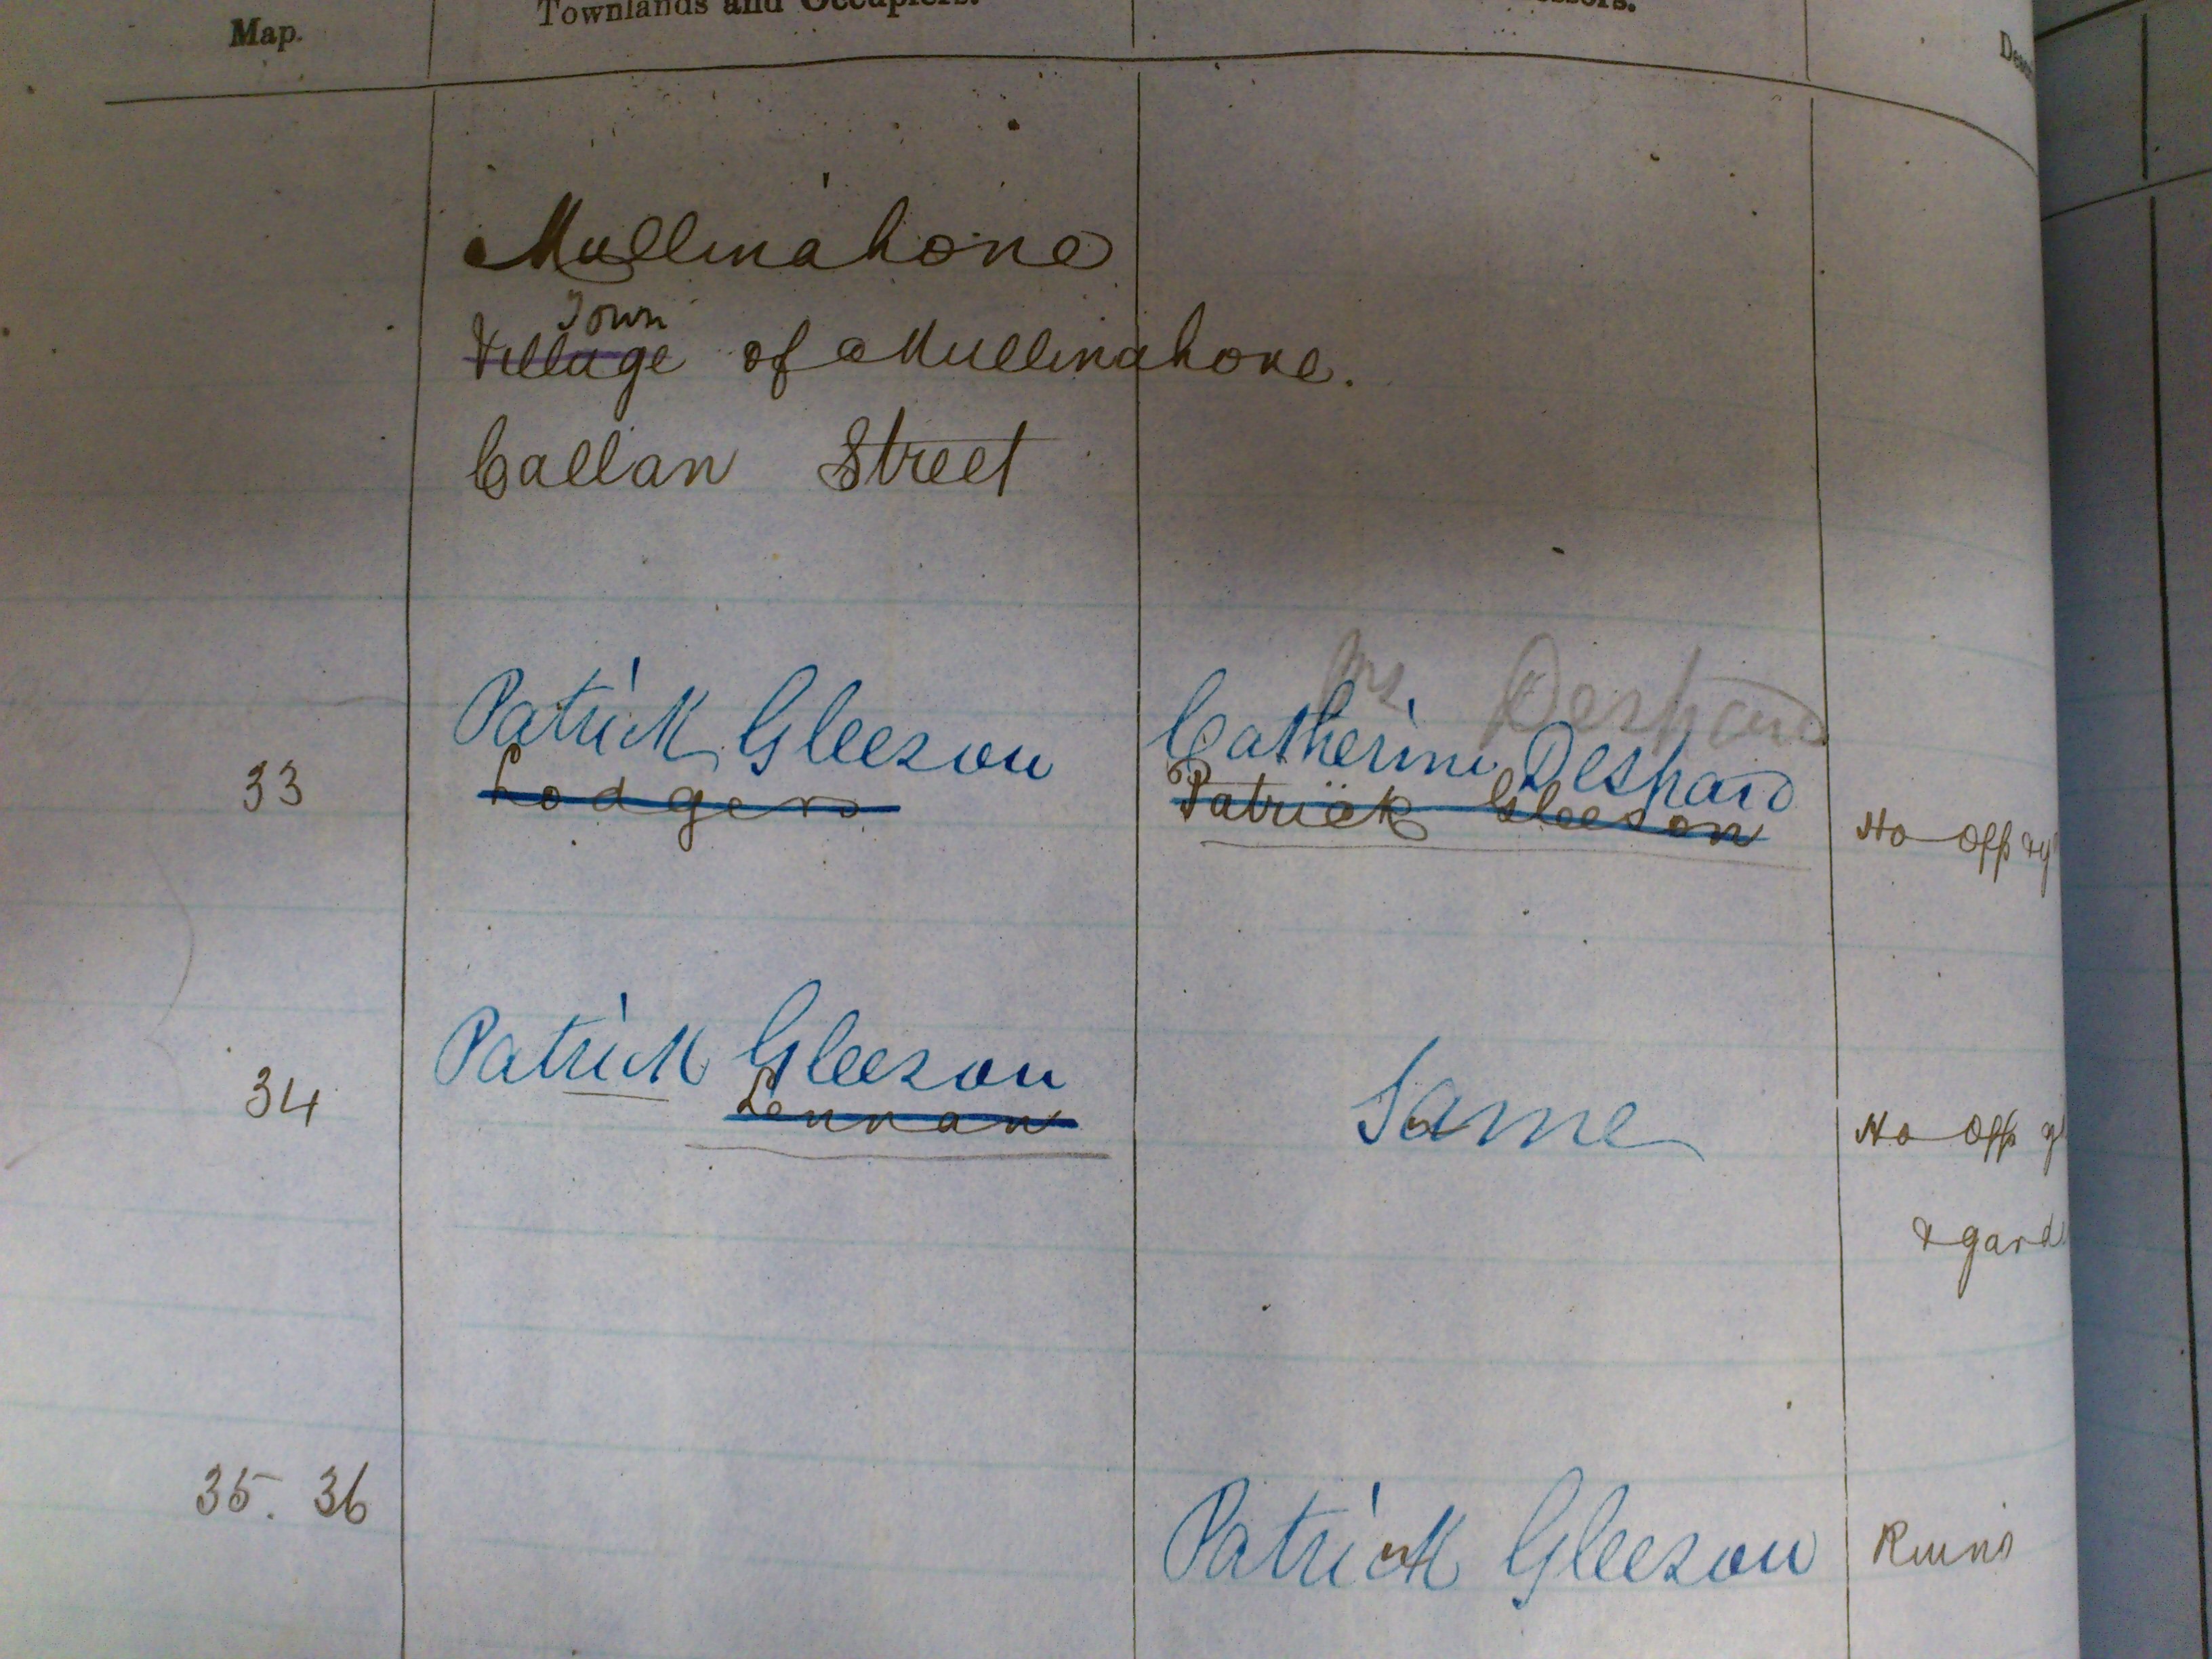 Map.
Townlands and Occupiers.
Mullinahone
Town
Village of Mullinahone.
Callan Street
33
Patrick Gleeson
Lodgers
Mrs Despard
Catherine Despard
Patrick Gleeson
Ho Off & y
34
Patrick Gleeson
Lennan
Same
Ho Off y
& gard
35. 36
Patrick Gleeson
Ruins